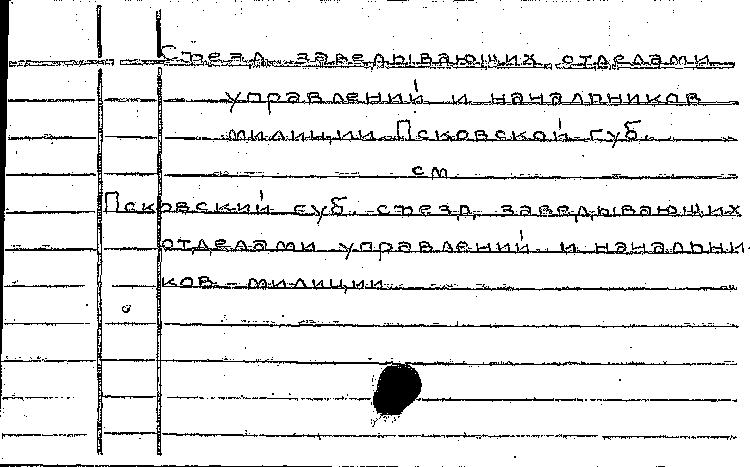 Съезд заведывающих отделами
управлений и начальников
милиции Псковской губ.
см
Псковский губ. съезд заведывающих
отделами управлений и начальни-
ков милиции